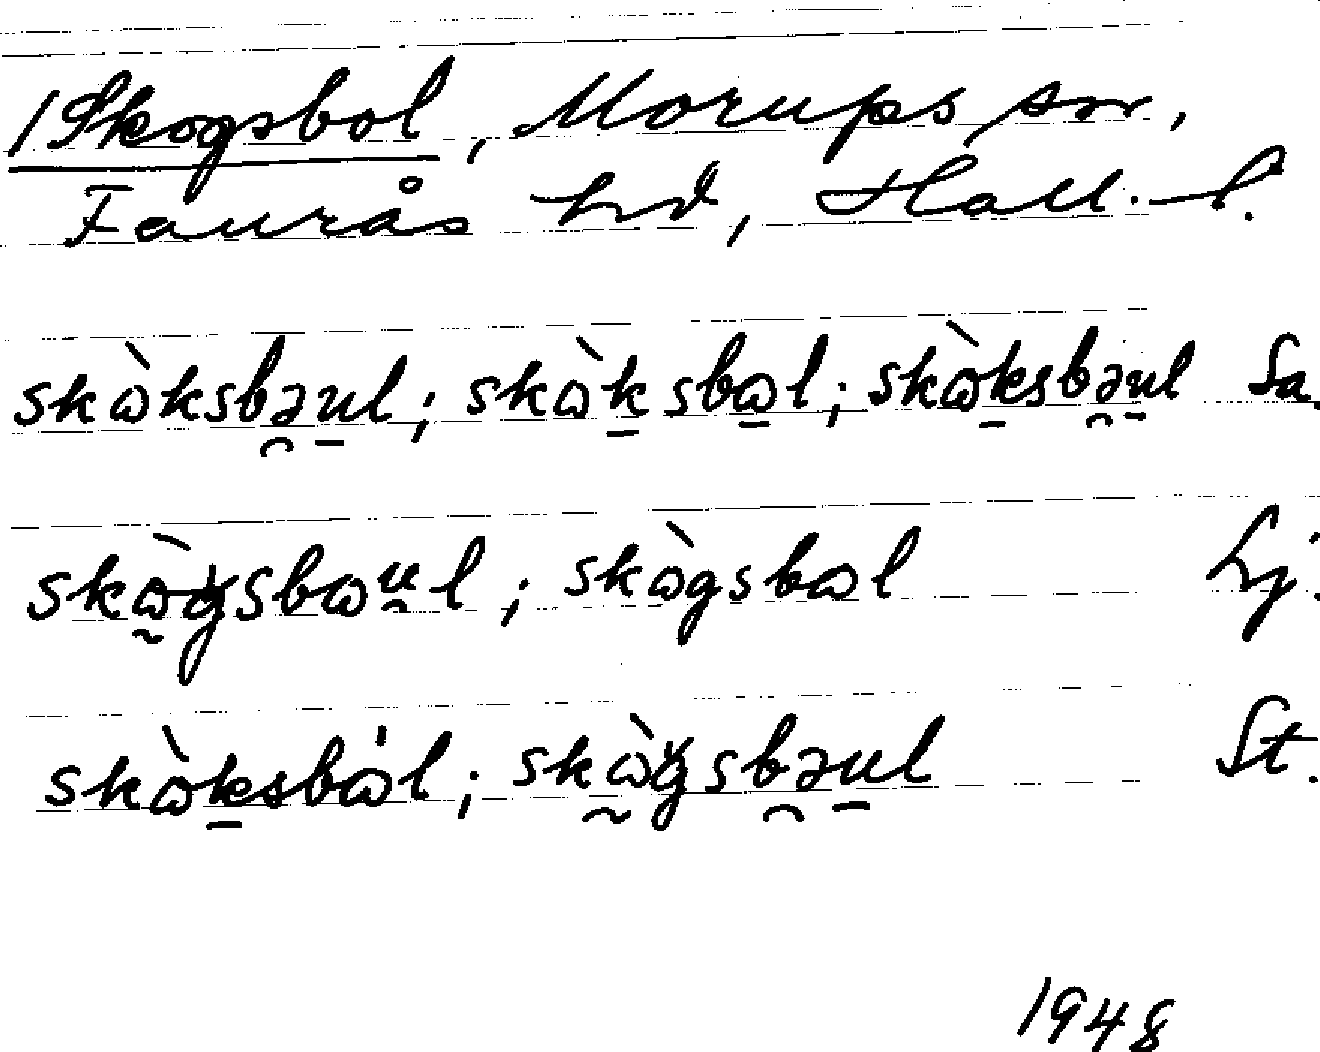 /Skogsbol, Morups sn,
Faurås hd, Hall. l.
skɷ̀ksbə̯u̠l; skɷ̀k̠sbɷ̠l; skɷ̠̀ksbə̯u̠l Sa.
skɷ̰̀gsbɷul; skɷ̀gsbɷl Lj.
skɷ̀k̠sbɷ̍l; skɷ̰̀gsbə̯u̠l St.
1948